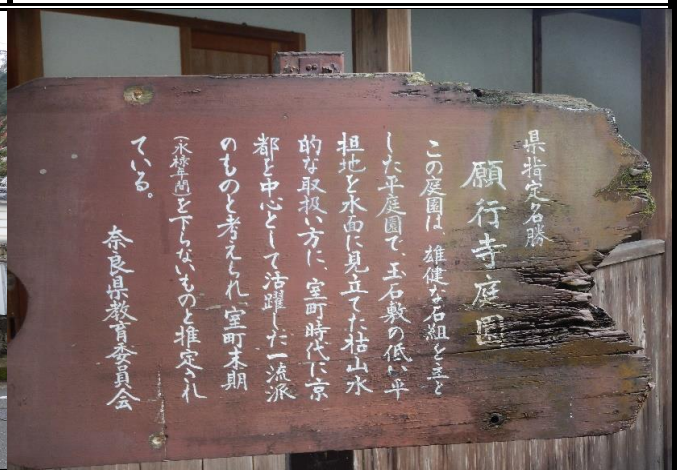 県指定名勝
願行寺庭園
この庭園は、雄健な石組を主と
した平庭園で、玉石敷の低い平
担地を水面に見立てた枯山水
的な取扱い方に、室町時代に京
都を中心として活躍した一流派
のものと考えられ、室町末期
(永禄年間)を下らないものと推定され
ている。
奈良県教育委員会